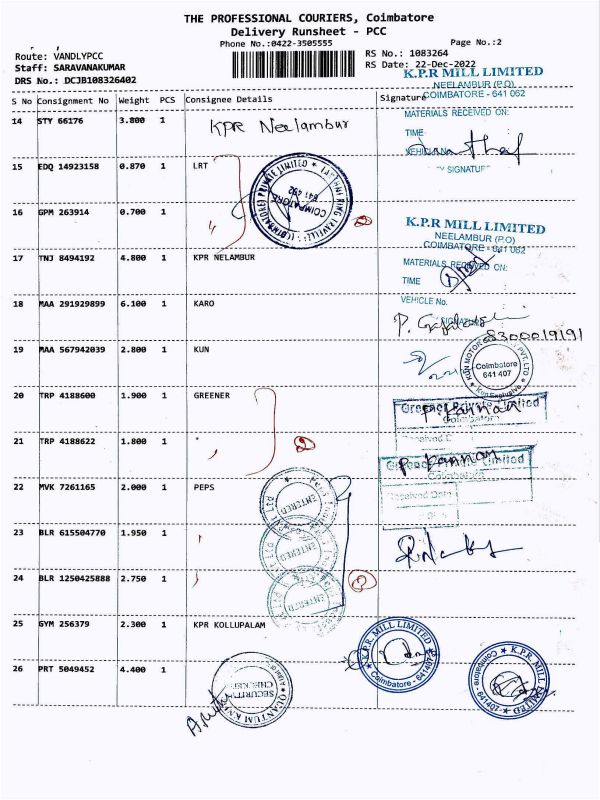 THE PROFESSIONAL COURIERS, Coimbatore
Delivery Runsheet - PCC
Phone No.:0422-3505555
Page No.:2
Route: VANDLYPCC
RS No.: 1083264
Staff: SARAVANAKUMAR
RS Date: 22-Dec-2022
DRS No.: DCJB108326402
K.P.R MILL LIMITED
NEELAMBUR (P.O)
COIMBATORE - 641 062
S No Consignment No Weight PCS Consignee Details Signature
MATERIALS RECEIVED ON:
TIME
VEHICLE No.
SIGNATURE
14 STY 66176 3.800 1 KPR Neelambur
15 EDQ 14923158 0.870 1 LRT
COIMBATORE
641 402
16 GPM 263914 0.700 1 "
2
K.P.R MILL LIMITED
NEELAMBUR (P.O)
COIMBATORE - 641 062
17 TNJ 8494192 4.800 1 KPR NELAMBUR
MATERIALS RECEIVED ON:
TIME
VEHICLE No.
SIGNATURE
18 MAA 291929899 6.100 1 KARO
8300019191
19 MAA 567942039 2.800 1 KUN
KUN MOTOR PVT. LTD
Coimbatore
641 407
Kun Exclusive
20 TRP 4188600 1.900 1 GREENER
Greener Private Limited
Coimbatore
P. Kannan
Received
21 TRP 4188622 1.800 1 "
2
Limited
Coimbatore
P. Kannan
Received Date
22 MVK 7261165 2.000 1 PEPS
ENTERED
23 BLR 615504770 1.950 1
ENTERED
24 BLR 1250425888 2.750 1
ENTERED
25 GYM 256379 2.300 1 KPR KOLLUPALAM
K.P.R. MILL LIMITED
Coimbatore - 641407
26 PRT 5049452 4.400 1
QUANTUM KNITS
SECURITY
CHECKED
K.P.R. MILL LIMITED
Coimbatore - 641407